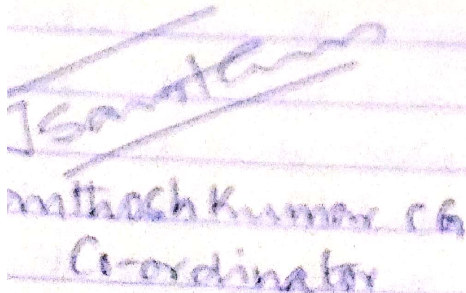 anthoshkumar CG
Co-ordinator